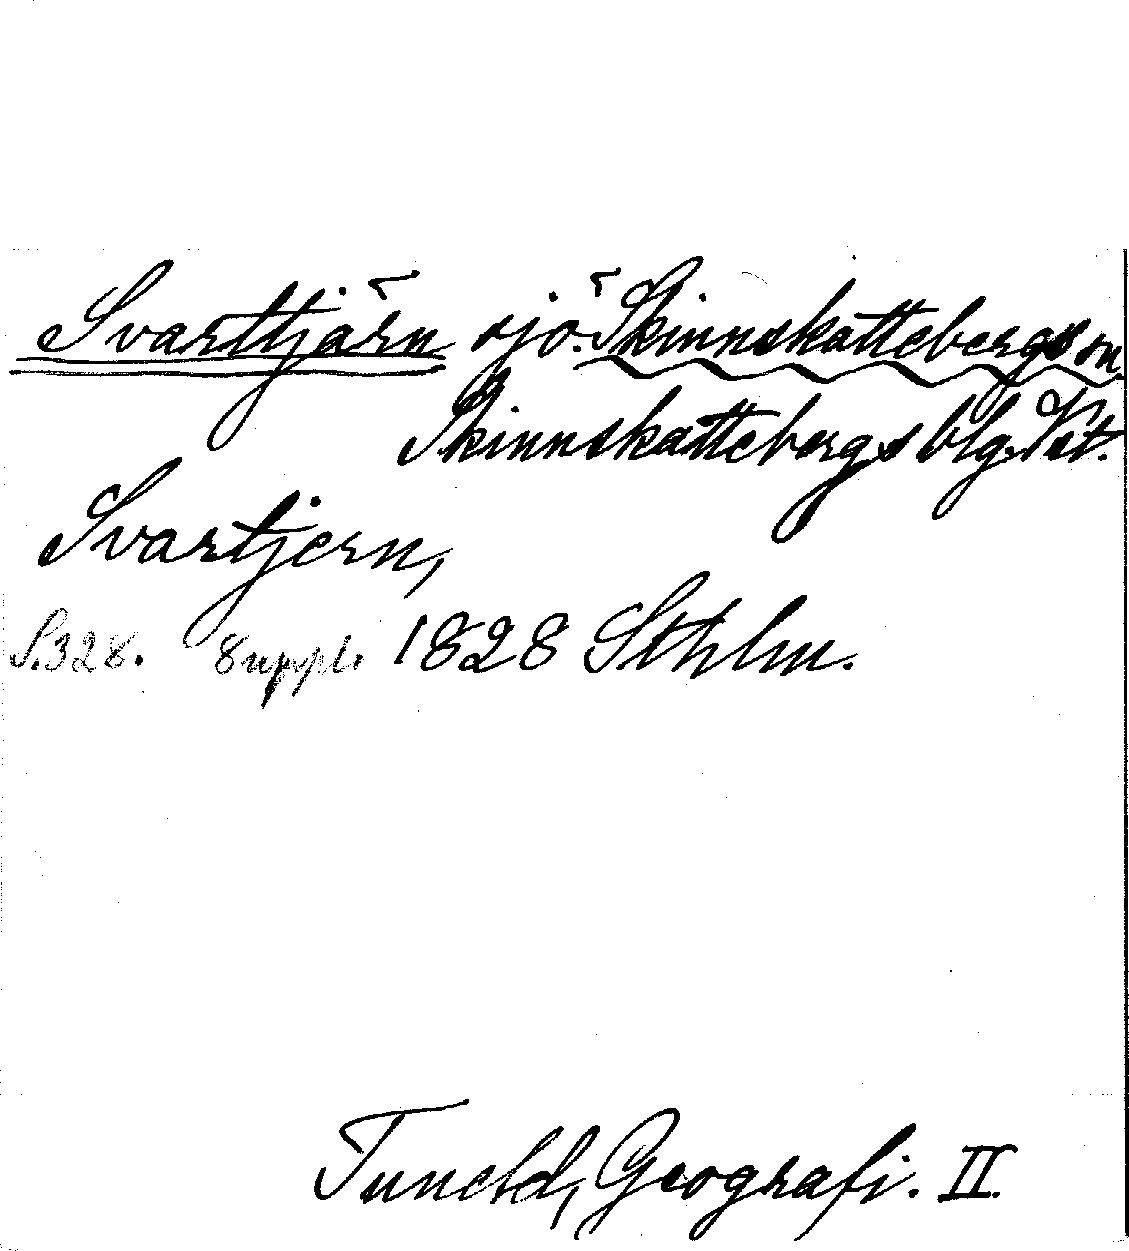 Svarttjärn sjö. Skinnskattebergs sn.
Skinnskattebergs blg. Vst.
Svartjern,
S. 328. 8 uppl. 1828 Sthlm.
Tuneld, Geografi. II.